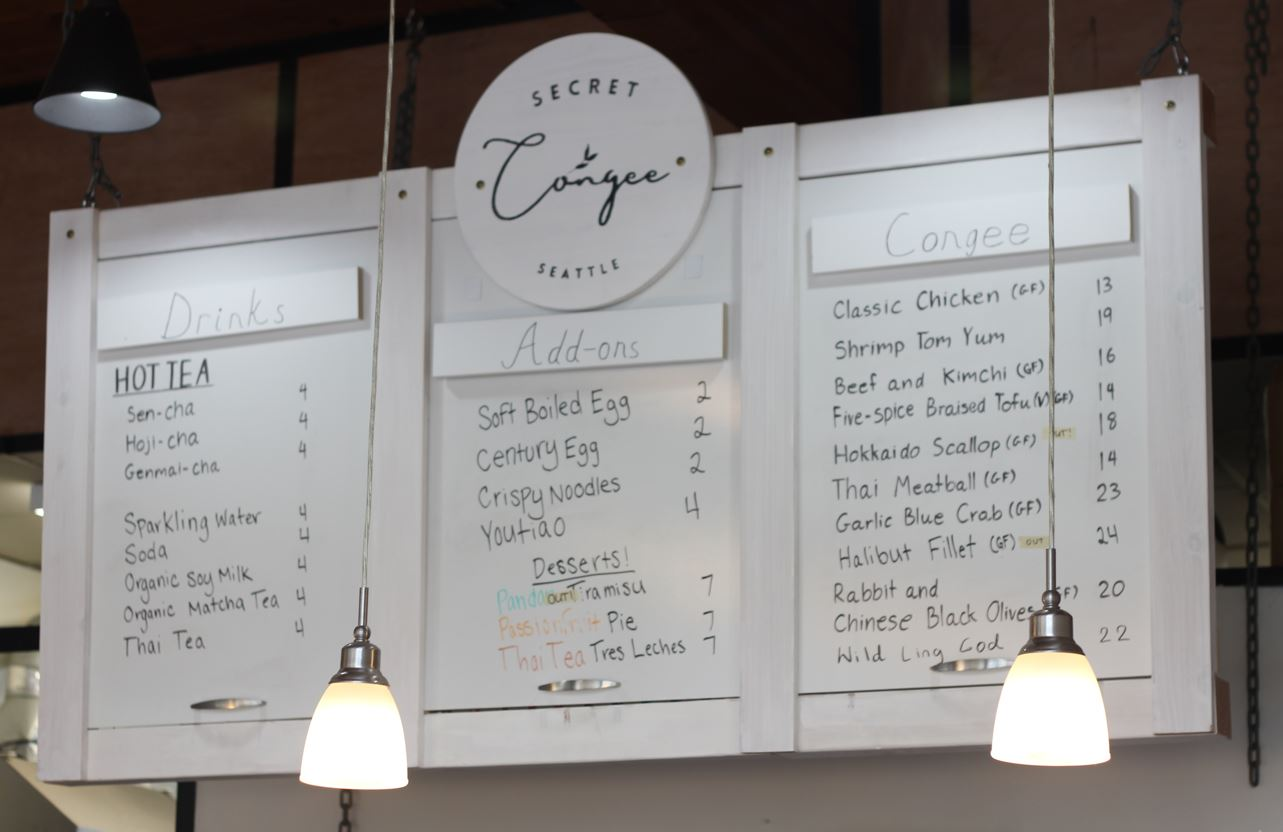 SECRET
Congee
SEATTLE
Drinks
HOT TEA
Sen-cha 4
Hoji-cha 4
Genmai-cha 4
Sparkling Water 4
Soda 4
Organic Soy Milk 4
Organic Matcha Tea 4
Thai Tea 4
Add-ons
Soft Boiled Egg 2
Century Egg 2
Crispy Noodles 2
Youtiao 4
Desserts!
OUT! Tiramisu 7
Passionfruit Pie 7
Thai Tea Tres Leches 7
Congee
Classic Chicken (GF) 13
Shrimp Tom Yum 19
Beef and Kimchi (GF) 16
Five-spice Braised Tofu (V) (GF) 14
Hokkaido Scallop (GF) OUT! 18
Thai Meatball (GF) 14
Garlic Blue Crab (GF) 23
Halibut Fillet (GF) OUT 24
Rabbit and
Chinese Black Olives 20
Wild Ling Cod 22